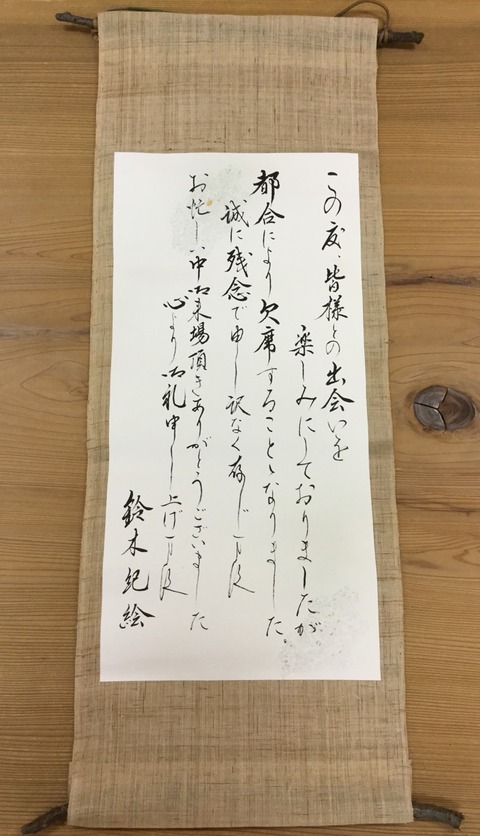 この度、皆様との出会いを
楽しみにしておりましたが
都合により欠席することゝなりました。
誠に残念で申し訳なく存じ〼候
お忙しい中御来場頂きありがとうございました
心より御礼申し上げ〼候
鈴木紀絵